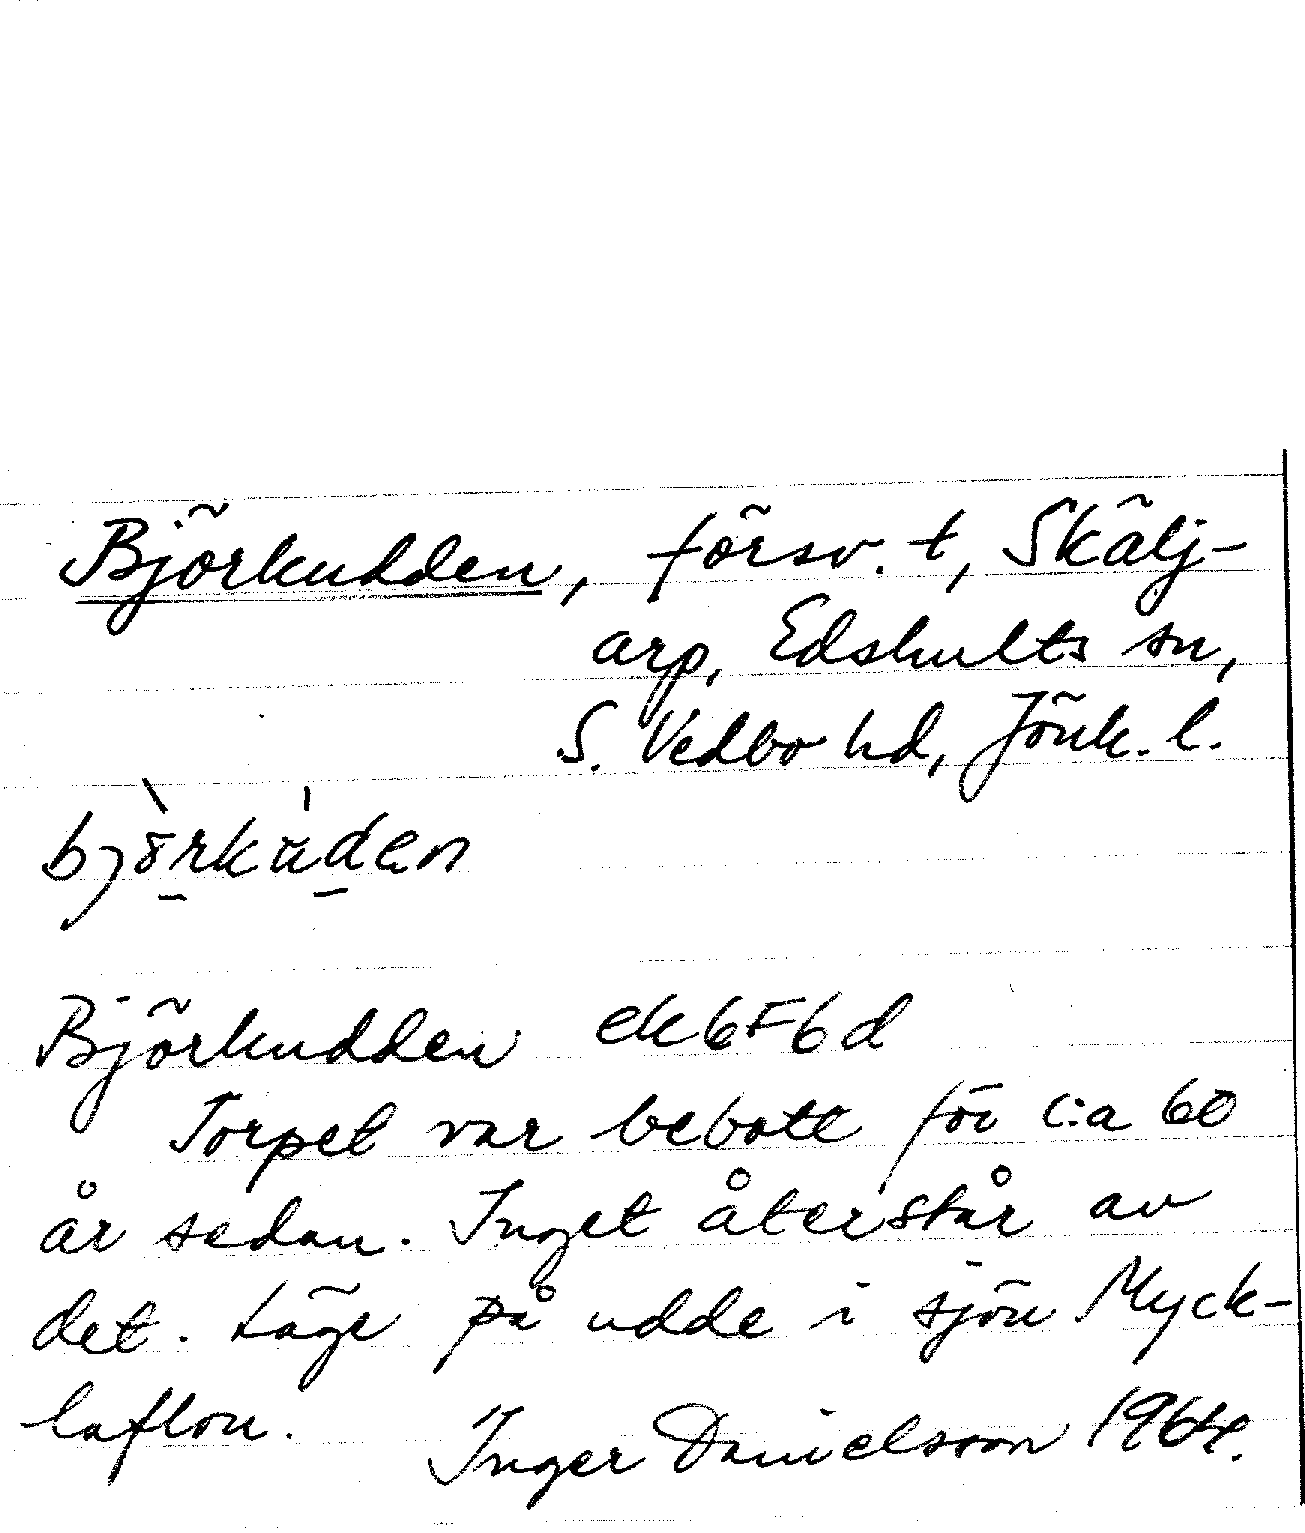 Björkudden, försv. t, Skälj-
arp, Edshults sn,
S. Vedbo hd, Jönk. l.
bjò̱rkúḏen
Björkudden ek 6F6d
Torpet var bebott för c:a 60
år sedan. Inget återstår av
det. Läge på udde i sjön Myck-
laflon.
Inger Danielsson 1964.